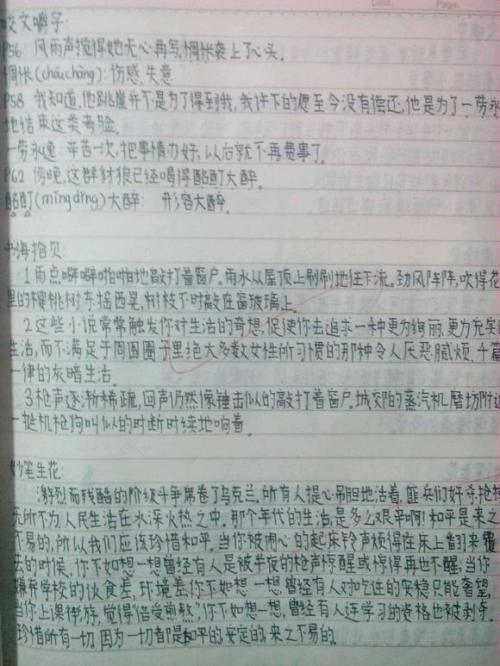 咬文嚼字:
P56 风雨声搅得她无心再写,惆怅袭上了心头。
惆怅(chóuchàng):伤感,失意
P58 我知道,他跳崖并不是为了得到我,我许下的愿至今没有偿还,他是为了一劳永
地结束这类考验。
一劳永逸:辛苦一次,把事情办好,以后就不再费事了。
P62 傍晚,这群豺狼已经喝得酩酊大醉。
酩酊(mǐngdǐng)大醉: 形容大醉。
书海拾贝:
1雨点噼噼啪啪地敲打着窗户。雨水从屋顶上刷刷地往下流。劲风阵阵,吹得花
里的樱桃树东摇西晃,树枝不时敲在窗玻璃上。
2这些小说常常触发你对生活的奇想,促使你去追求一种更为绚丽,更为充实
生活,而不满足于周围圈子里绝大多数女性所习惯的那种令人厌恶,腻烦,千篇
一律的灰暗生活。
3枪声逐渐稀疏,回声仍然像锤击似的敲打着窗户。城郊的蒸汽机磨坊附近
一挺机枪狗叫似的时断时续地响着。
妙笔生花:
激烈而残酷的阶级斗争席卷了乌克兰,所有人提心吊胆地活着,匪兵们奸夺抢
无所不为,人民生活在水深火热之中。那个年代的生活,是多么艰辛啊!和平是来之
不易的,所以我们应该珍惜和平。当你被闹心的起床铃声烦得在床上翻来覆
去的时候,你不如想一想曾经有人是被半夜的枪声惊醒或惊得再也不醒;当你
嫌弃学校的伙食差,环境差,你不如想一想,曾经有人对吃住的安稳只能奢望,
当你上课徘游,觉得“倍受煎熬”你不如想一想,曾经有人连学习的资格也被剥夺。
珍惜所有一切,因为一切都是和平的,安定的,来之不易的。